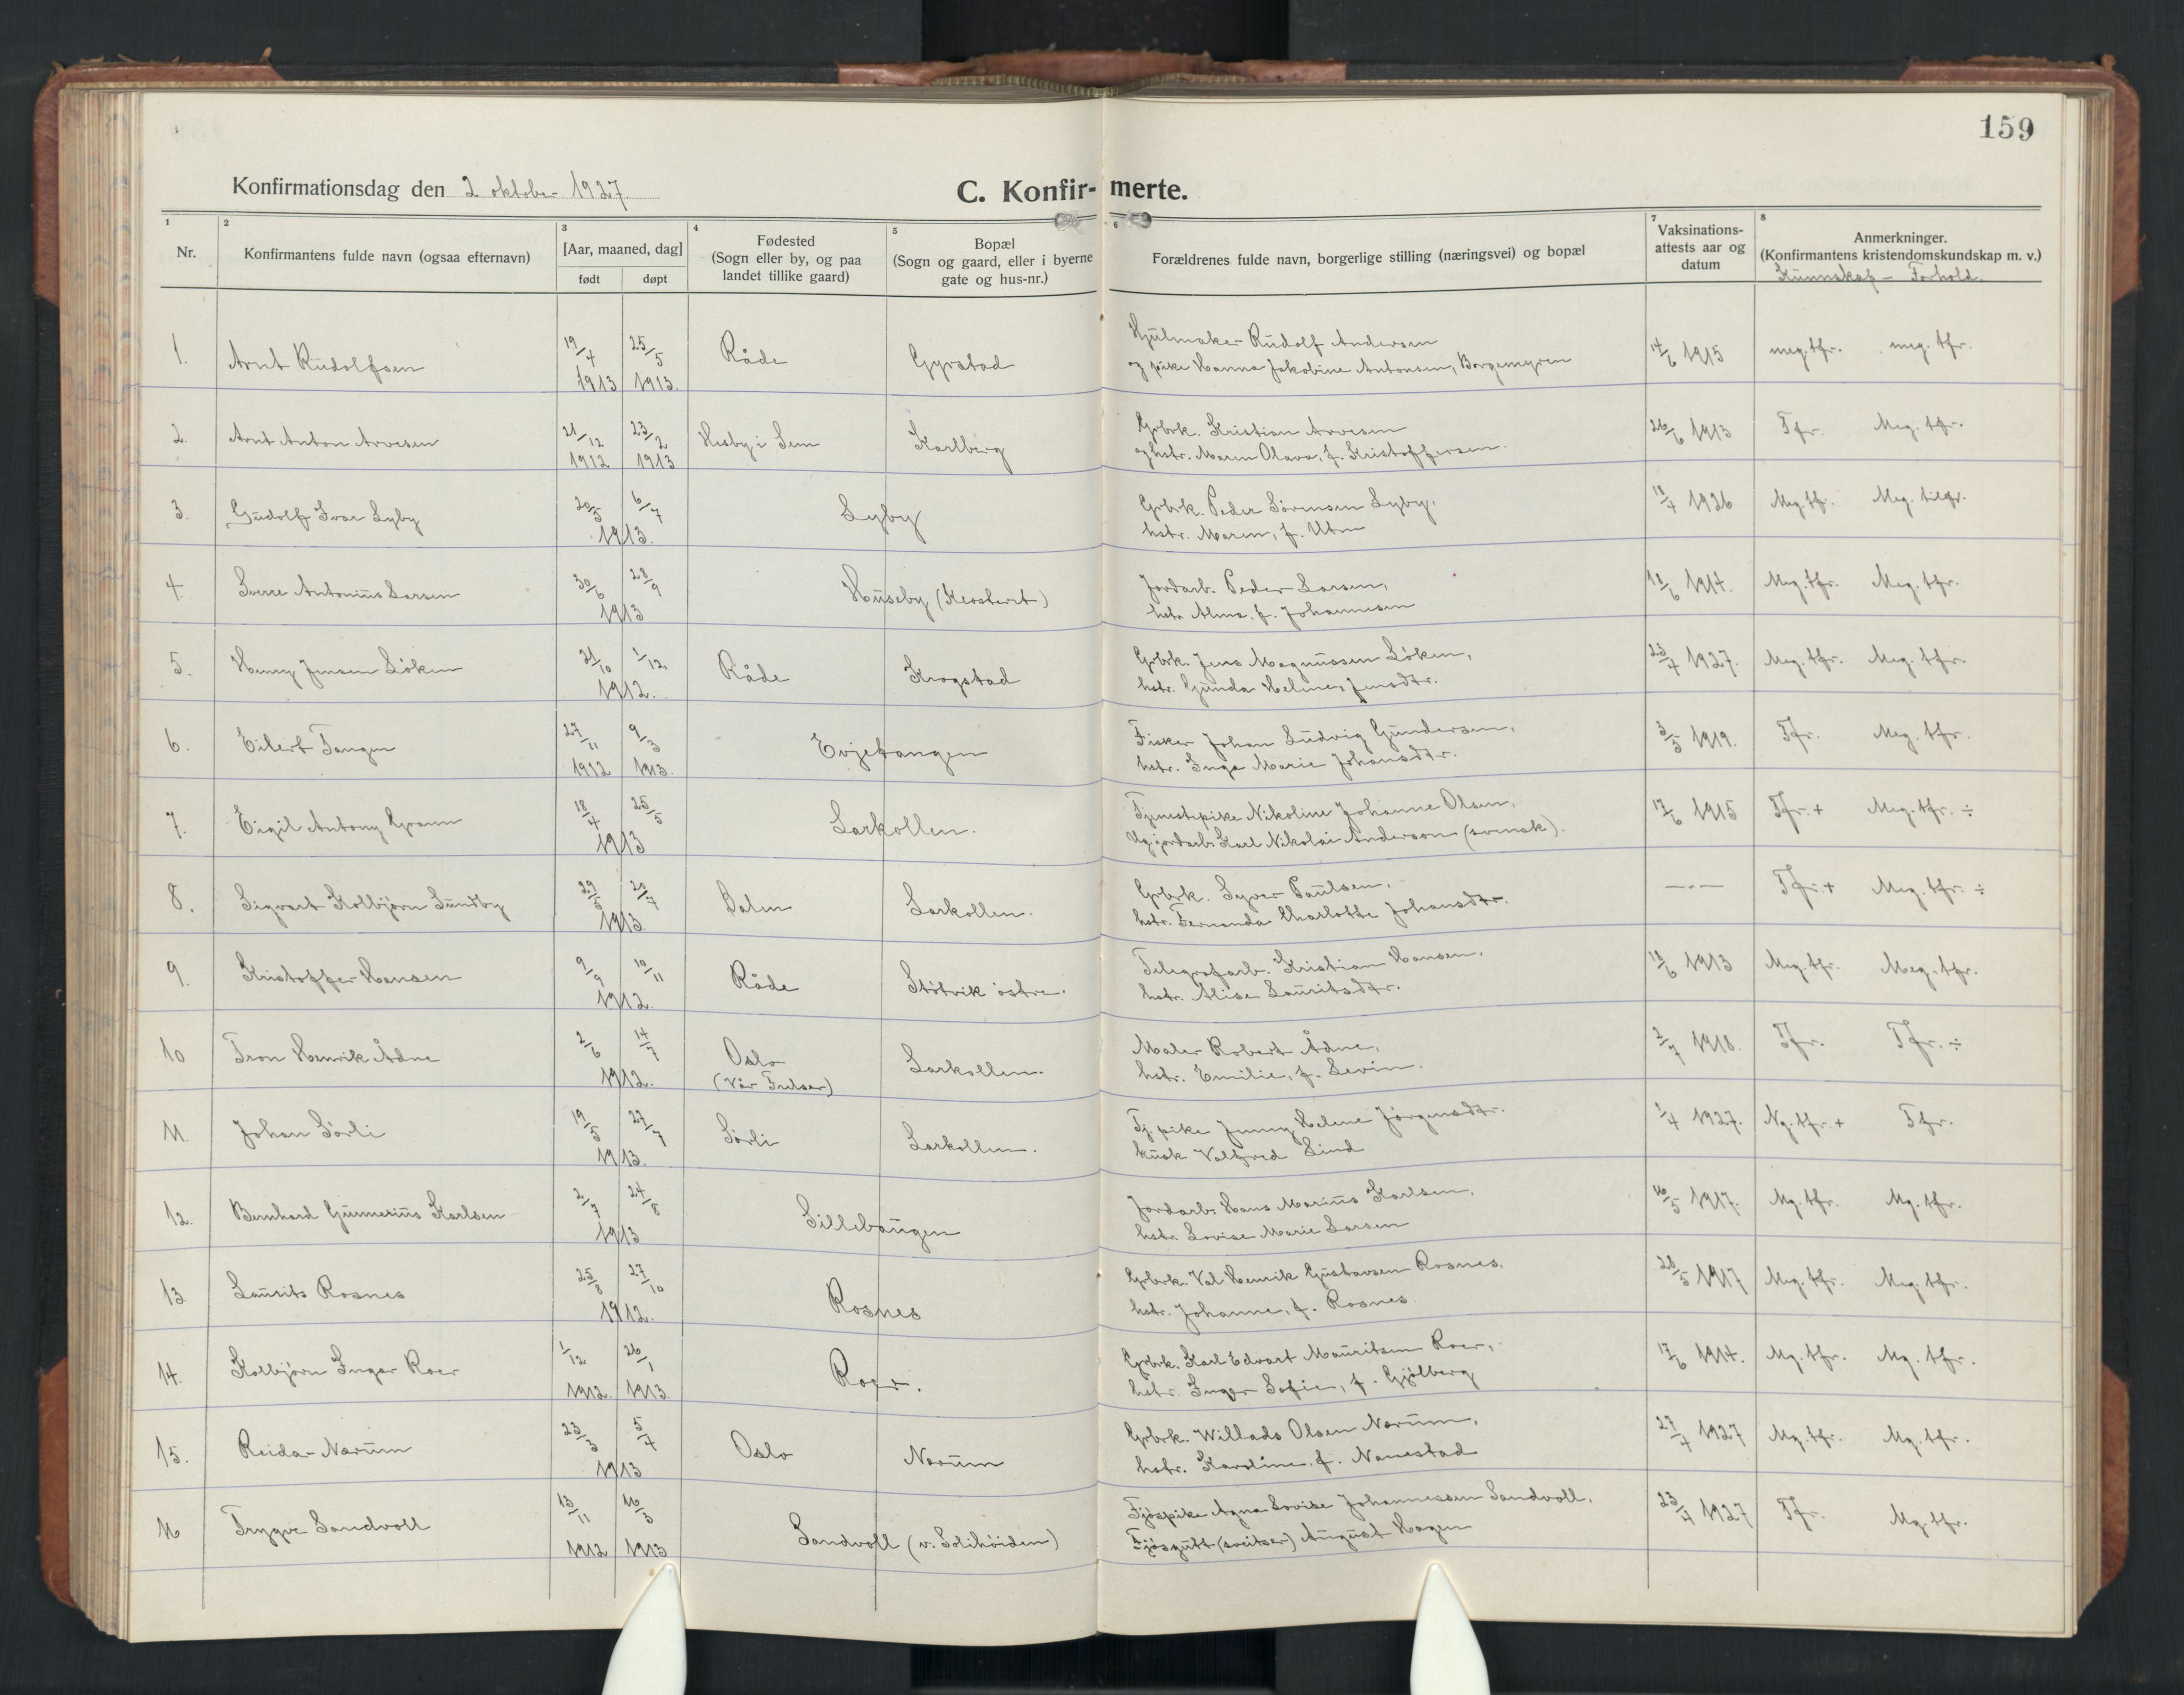 159
Konfirmationsdag den 2 oktober 1927.
C. Konfir- merte.
1 2 3 4 5 6 7 8
Nr.
Konfirmantens fulde navn (ogsaa efternavn)
[Aar, maaned, dag]
født døpt
Fødested
(Sogn eller by, og paa
landet tillike gaard)
Bopæl
(Sogn og gaard, eller i byerne
gate og hus-nr.)
Forældrenes fulde navn, borgerlige stilling (næringsvei) og bopæl
Vaksinations-
attests aar og
datum
Anmerkninger.
(Konfirmantens kristendomskundskap m. v.)
Kunnskap – Forhold.
1. Arnt Rudolfsen 19/4 1913 25/5 1913. Råde Gyrstad Hjulmaker Rudolf Andersen
og pike Hanna Jakobine Antonsen, Borgemyren 14/6 1915 meg. tfr. meg. tfr.
2. Arnt Anton Arvesen 21/12 1912 23/2 1913 Husby i Sem Karlberg Grbrk. Kristian Arvesen
og hstr. Maren Olava, f. Kristoffersen. 26/6 1913 Tfr. Meg. tfr.
3. Gudolf Ivar Lyby 20/5 6/7 1913. Lyby Grbrk. Peder Sørensen Lyby,
hstr. Maren, f. Utne 18/7 1926 Meg. tfr. Meg. tilfr.
4. Sverre Antonius Larsen 30/6 28/9 1913 Huseby (Kersteret) Jordarb. Peder Larsen,
hstr. Alma, f. Johannesen 18/6 1914. Meg. tfr. Meg. tfr.
5. Henry Jensen Løken 21/10 1/12 1912. Råde Krogstad Grbrk. Jens Magnussen Løken,
hstr. Gunda Helene, Jensdtr. 23/7 1927. Meg. tfr. Meg. tfr.
6. Eilert Tangen 27/11 1912 9/3 1913. Evjetangen Fisker Johan Ludvig Gundersen,
hstr. Inga Marie Johansdtr. 3/5 1919. Tfr. Meg. tfr.
7. Eigil Antony Grann 18/4 25/5 1913 Larkollen. Tjenestepike Nikoline Johanne Olsen,
Ug. jordarb. Karl Nikolai Anderson (svensk). 17/6 1915 Tfr. + Meg. tfr. ÷
8. Sigvart Kolbjørn Sundby 29/5 20/7 1913 Dalen Larkollen. Grbrk. Syver Paulsen,
hstr. Fernanda Charlotte Johansdtr. —"— Tfr. + Meg. tfr. ÷
9. Kristoffer Hansen 9/9 10/11 1912. Råde Støtvik østre. Telegrafarb. Kristian Hansen,
hstr. Alise Lauritsdtr. 18/6 1913 Meg. tfr. Meg. tfr.
10 Tron Henrik Ådne 2/6 14/7 1912. Oslo
(Vår Frelser) Larkollen. Maler Robert Ådne,
hstr. Emilie, f. Levin. 2/7 1918. Tfr. Tfr. ÷
11. Johan Sørli 19/5 27/7 1913. Sørli Larkollen. Tj. pike Jenny Helene Jørgensdtr.
kusk Valfred Lind 1/4 1927. Ng. tfr. + Tfr.
12. Bernhard Gunnerius Karlsen 2/7 24/8 1913 Sillebaugen Jordarb. Hans Marius Karlsen,
hstr. Lovise Marie Larsen 16/5 1917. Mg. tfr. Mg. tfr.
13. Laurits Rosnes 25/8 27/10 1912. Rosnes Grbrk. Val Henrik Gustavsen Rosnes,
hstr. Johanne, f. Rosnes. 28/5 1917 Meg. tfr. Meg. tfr.
14. Kolbjørn Ingar Roer 1/12 1912. 26/1 1913. Roer. Grbrk. Karl Edvart Mauritsen Roer,
hstr. Inger Sofie, f. Gjølberg 17/6 1914. Mg. tfr. Mg. tfr.
15. Reidar Narum 23/3 5/4 1913 Oslo Narum Grbrk. Willads Olsen Narum,
hstr. Karoline, f. Nanestad 27/7 1927 Mg. tfr. Mg. tfr.
16 Trygve Sandvoll 13/11 1912 16/3 1913 Sandvoll (v. Solihøiden) Fjøspike Agna Lovise Johannessen Sandvoll,
Fjøsgutt (sveitser) August Hagen 23/7 1927 Tfr. Mg. tfr.